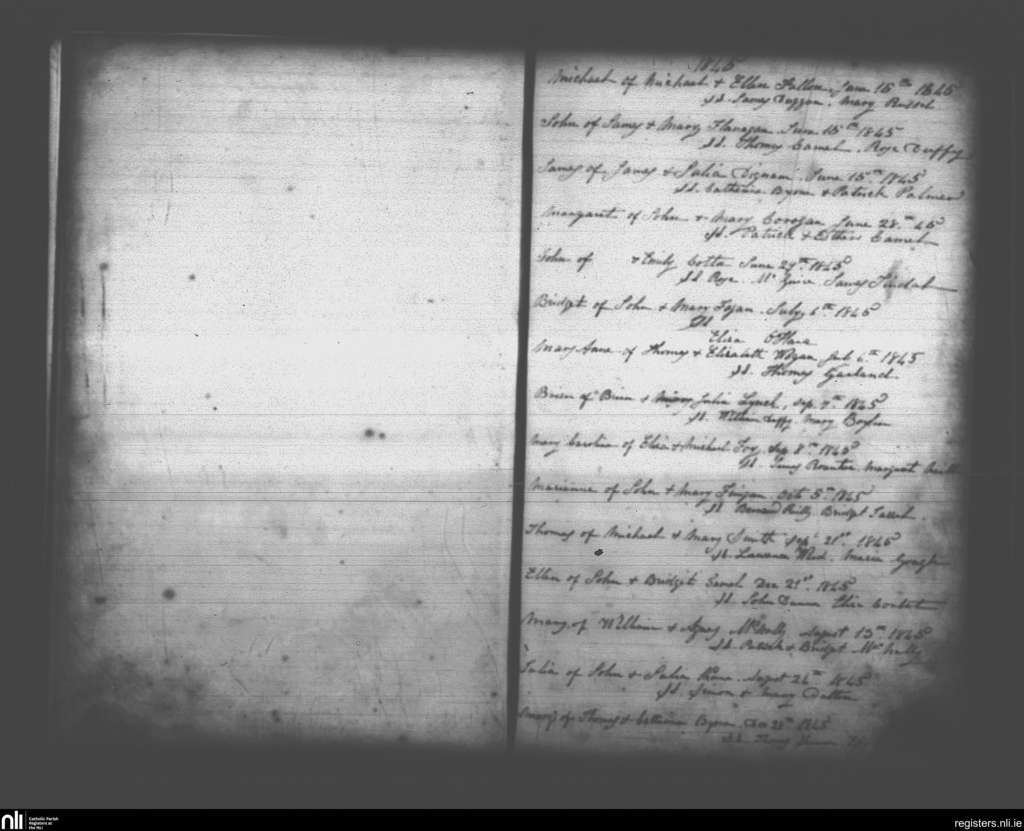 1845
Michael of Michael & Ellen Fallon June 15th 1845
Sd. James Duggan. Mary Russel
John of James & Mary Flanagan June 15th 1845
Sd. Thomas Camel. Rose Duffy
James of James & Julia Dignam. June 15th 1845
Sd. Catherine Byrne & Patrick Palmer
Margaret of John & Mary Corogan June 28th 45
Sd. Patrick & Esther Camel
John of & Emily Cotta June 29th 1845
Sd Rose McGuire James
Bridget of John & Mary Fagan. July 6th 1845
Sd
Eliza O'Hara
Mary Anne of Thomas & Elizabeth Wogan July 6th 1845
Sd. Thomas Garland.
Brien of Brien & Julia Lynch, Sep. 7th 1845
Sd. William Duffy. Mary Boylan
Mary Caroline of Eliza & Michael Foy Sep 8th 1845
Sd. James Rountree Margaret
Marianne of John & Mary Finegan Octo 5th 1845
Sd Bernard Reilly Bridget
Thomas of Michael & Mary Smith Sept 21st 1845
Sd. Laurence Maria
Ellen of John & Bridget Dec 21st 1845
Sd. John Dunne Eliza
Mary of William & Agnes McNally August 13th 1845
Sd. Patrick & Bridget McNally
Julia of John & Julia Kane August 24th 1845
Sd. Simon & Mary Dalton
Mary of Thomas & Catherine Byrne Dec 28th 1845
Sd. Thomas
nli
Catholic Parish
Registers at
the NLI
registers.nli.ie